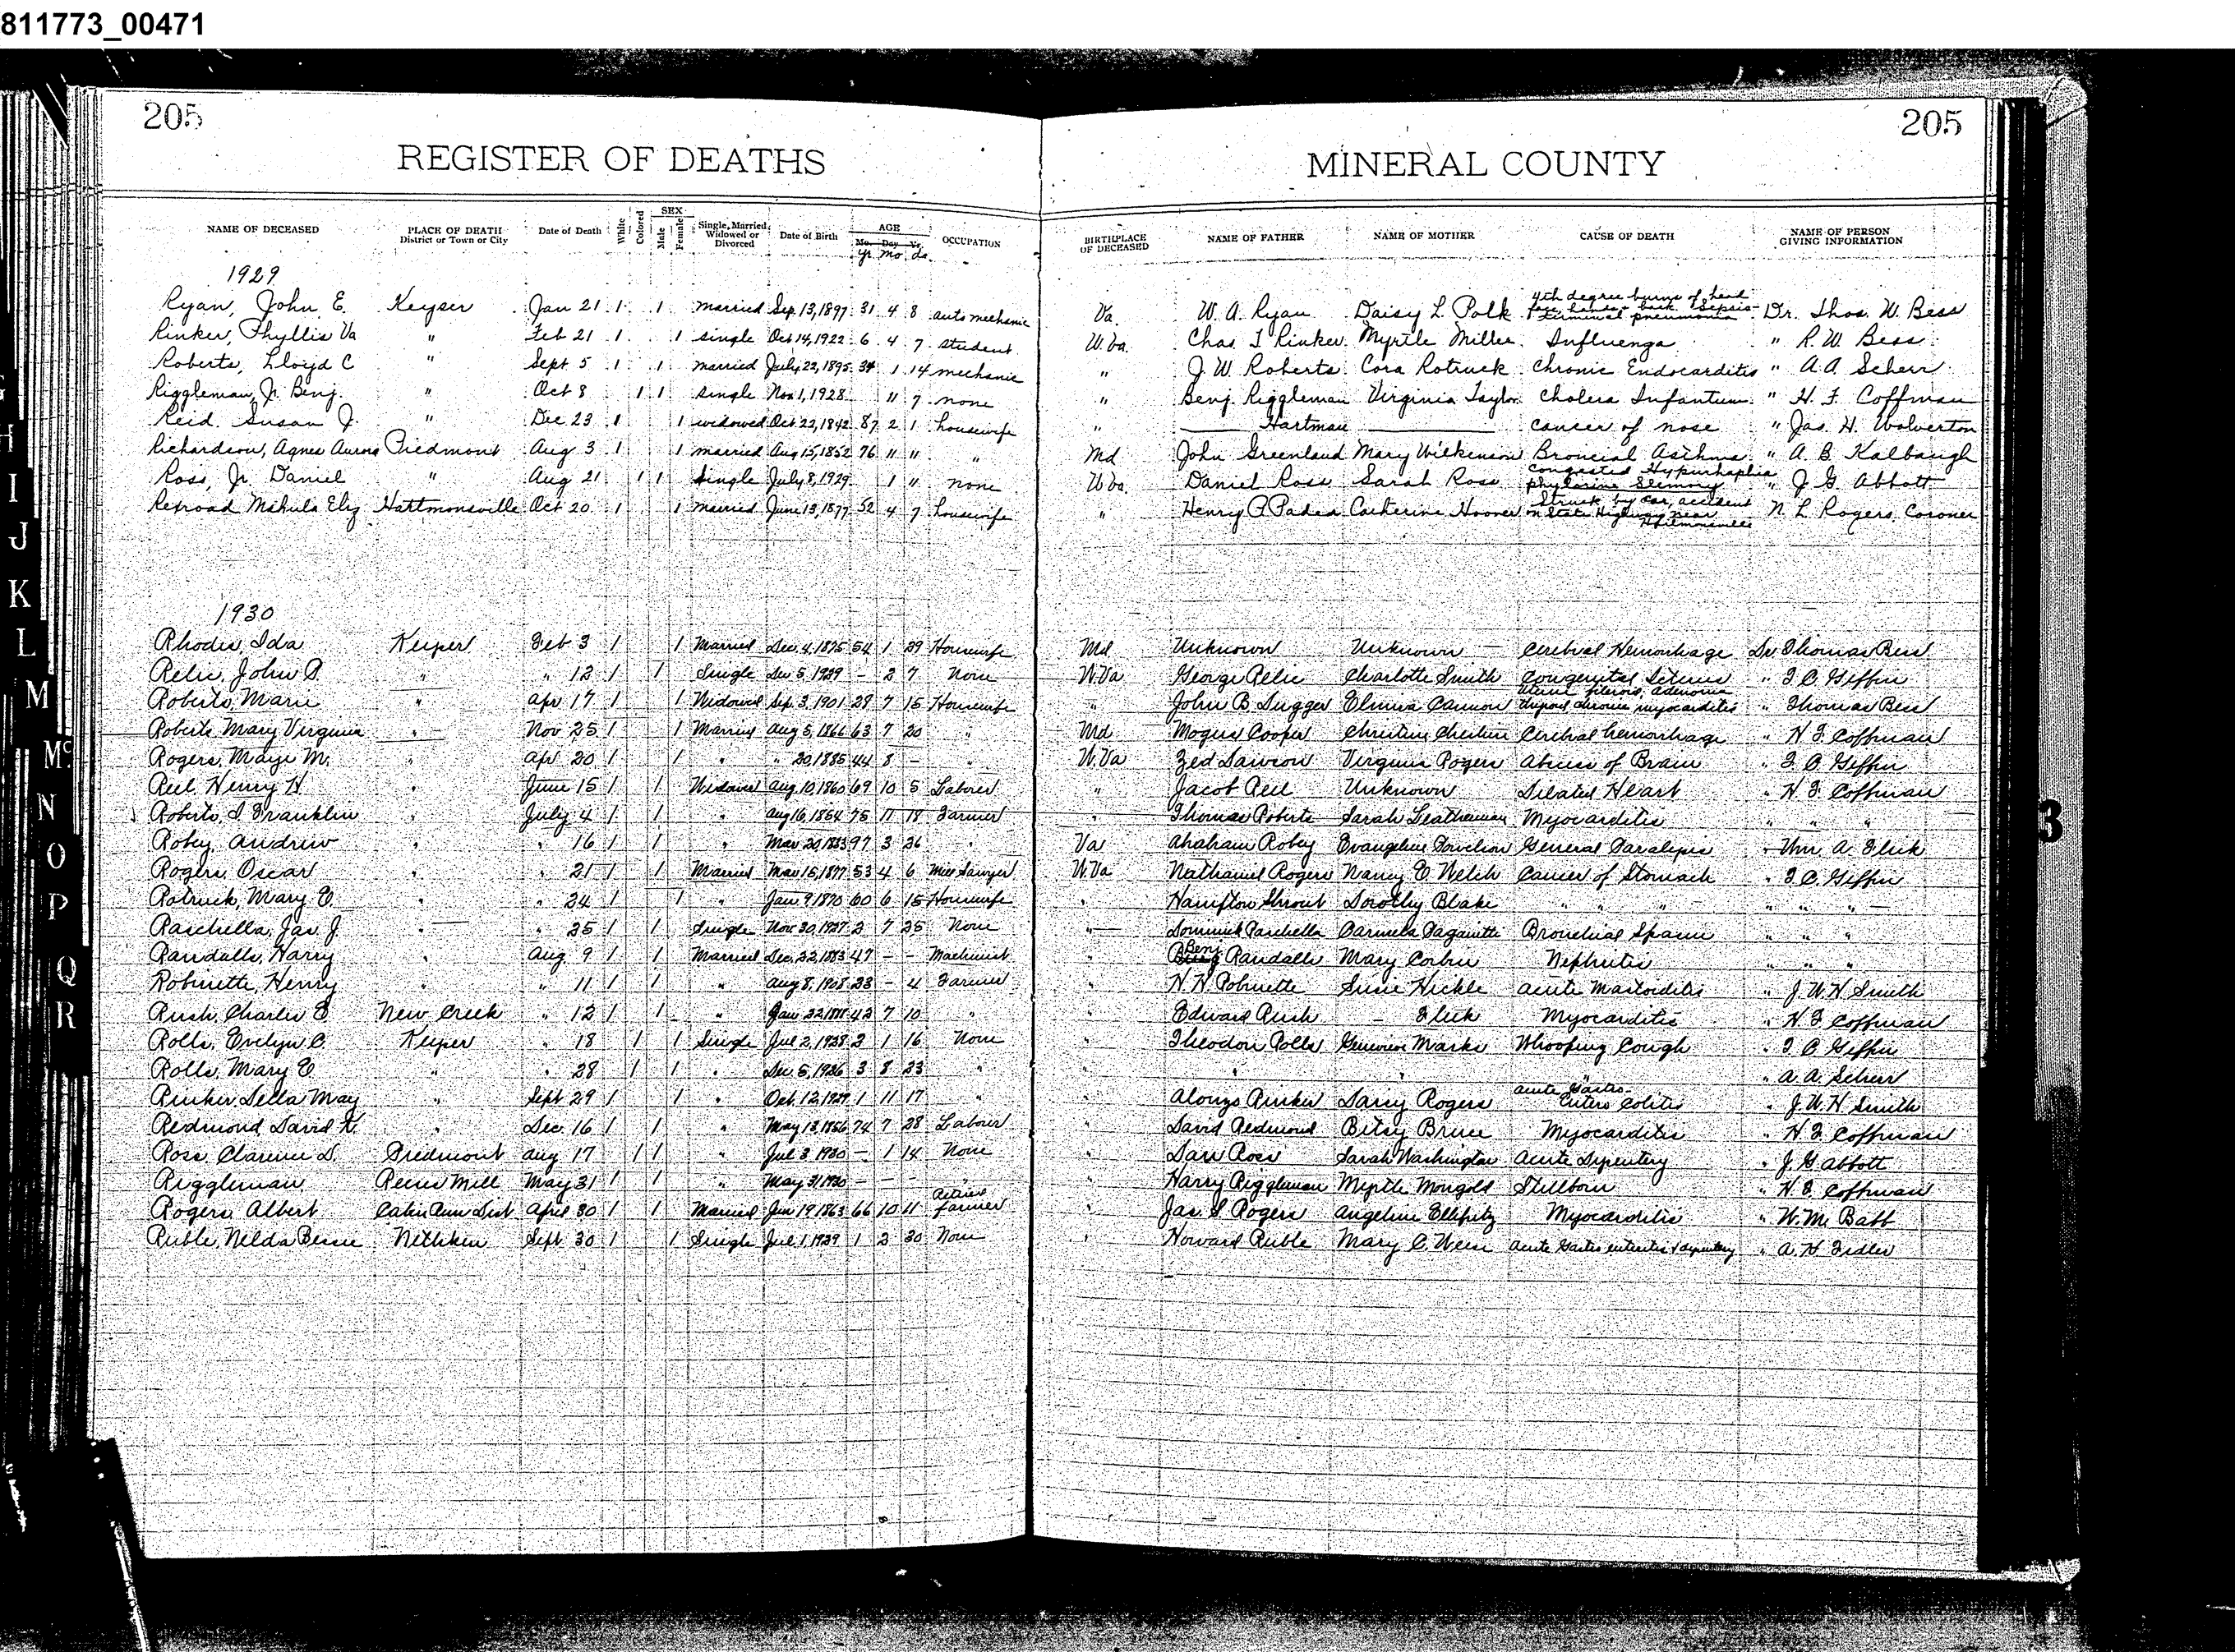 811773_00471
205
205
REGISTER OF DEATHS
MINERAL COUNTY
NAME OF DECEASED PLACE OF DEATH District or Town or City Date of Death White Colored SEX Male Female Single, Married, Widowed or Divorced Date of Birth AGE Mo. Day Yr. yr mo ds. OCCUPATION BIRTHPLACE OF DECEASED NAME OF FATHER NAME OF MOTHER CAUSE OF DEATH NAME OF PERSON GIVING INFORMATION
1929
Ryan, John E. Keyser Jan 21 1 1 married Sep. 13, 1897 31 4 8 auto mechanic Va. W. A. Ryan Daisy L Polk 4th degree burns of head terminal pneumonia Dr. Thos. W. Bess
Rinker, Phyllis Va " Feb 21 1 1 single Oct 14, 1922 6 4 7 student W. Va. Chas. T Rinker Myrtle Miller Influenza " R. W. Bess
Roberts, Lloyd C " Sept 5 1 1 married July 22, 1895 34 1 14 mechanic " J. W. Roberts Cora Rotruck Chronic Endocarditis " A. A. Scherr
Riggleman, Jr. Benj. " Oct 8 1 1 single Nov 1, 1928 11 7 none " Benj Riggleman Virginia Taylor Cholera Infantum " H. F. Coffman
Reid Susan J. " Dec 23 1 1 widowed Oct 22, 1842 87 2 1 housewife " Hartman cancer of nose " Jas. H. Wolverton
Richardson, Agnes Aurora Piedmont Aug 3 1 1 married Aug 15, 1852 76 11 11 " Md John Greenland Mary Wilkenson Broncial Asthma " A. B. Kalbaugh
Ross, Jr. Daniel " Aug 21 1 1 Single July 8, 1929 1 11 none W Va. Daniel Ross Sarah Ross " J. G. Abbott
Rexroad Mahula Eliz Hartmonsville Oct 20 1 1 married June 13, 1877 52 4 7 housewife " Henry Catherine Hoover Struck by car, accident on State Highway near Hartmonsville N. L. Rogers, Coroner
1930
Rhodes, Ida Keyser Feb 3 1 1 Married Dec. 4, 1875 54 1 29 Housewife Md Unknown Unknown Cerebral Hemorrhage Dr Thomas Bess
Relic, John " 12 1 1 Single Dec 5, 1929 - 2 7 None W Va George Relic Charlotte Smith Congenital Icterus " T. C. Giffin
Roberts, Marie " Apr 17 1 1 Widowed Sep. 3, 1901 28 7 15 Housewife " John B. Elmira Cannon chronic myocarditis " Thomas Bess
Roberts Mary Virginia " Nov 25 1 1 Married Aug 5, 1866 63 7 20 " Md Cooper Cerebral hemorrhage " H. F. Coffman
Rogers, Maye M. " Apr 20 1 1 " " 20, 1885 44 8 - " W. Va Zed Dawson Virginia Rogers Abscess of Brain " T. C. Giffin
Henry H. " June 15 1 1 Widower Aug 10, 1860 69 10 5 Laborer " Jacob Unknown Dilated Heart " H. F. Coffman
Roberts, Franklin " July 4 1 1 " Aug 16, 1854 75 11 18 Farmer " Thomas Roberts Sarah Leatherman Myocarditis " " "
Robey, Andrew " " 16 1 1 " Mar 20 1833 97 3 26 " Va Abraham Robey General Paralysis " Wm. A. Flick
Rogers, Oscar " " 21 1 1 Married Mar 15, 1877 53 4 6 Mill Sawyer W. Va Nathaniel Rogers Nancy E. Welch Cancer of Stomach " T. C. Giffin
Rotruck, Mary E. " " 24 1 1 " Jan. 9 1870 60 6 15 Housewife " Hampton Shrout Dorothy Blake " " " " " "
Raschella, Jas. J. " " 25 1 1 Single Nov. 30, 1927 2 7 25 None " Dominick Raschella Bronchial Spasm " " "
Randalls, Harry " Aug. 9 1 1 Married Dec. 22, 1883 47 - - Machinist " Benj Randalls Mary Nephritis " " "
Robinette, Henry " " 11 1 1 " Aug 8, 1908 23 - 4 Farmer " H. H. Robinette Susie Hickle Acute Mastoiditis " J. W. H. Smith
Rush, Charles E New Creek " 12 1 1 " Jan 22 1888 42 7 10 " " Edward Rush - Flick Myocarditis " H. F. Coffman
Rolls, Evelyn C. Keyser " 18 1 1 Single Jul 2, 1928 2 1 16 None " Theodore Rolls Genevieve Marks Whooping Cough " T. C. Giffin
Rolls, Mary E " " 28 1 1 " Dec. 5, 1926 3 8 23 " " " " " A. A. Scherr
Rinker, Della May " Sept 29 1 1 " Oct. 12, 1929 11 17 " " Alonzo Rinker Daisy Rogers Acute Gastro- Entero Colitis " J. W. H. Smith
Redmond, David K. " Dec. 16 1 1 " May 18, 1856 74 7 28 Laborer " David Redmond Betsy Bruce Myocarditis " H. F. Coffman
Ross, Clarence D. Piedmont Aug 17 1 1 " Jul 3, 1930 - 1 14 None " Dan Ross Sarah Washington Acute Dysentery " J. G. Abbott
Riggleman Reeses Mill May 31 1 1 " May 31, 1930 - - - " " Harry Riggleman Myrtle Mongold Stillborn " H. F. Coffman
Rogers, Albert Cabin Run Dist April 30 1 1 Married Jun 19 1863 66 10 11 Retired farmer " Jas. S Rogers Angeline Myocarditis " W. M. Babb
Ruble, Nelda Bessie Nethken Sept 30 1 1 Single Jul 1, 1929 1 2 30 None " Howard Ruble Mary C. Acute Gastro enteritis & dysentery " A. H. Fidler
H
I
J
K
L
M
Mc
N
O
P
Q
R
3